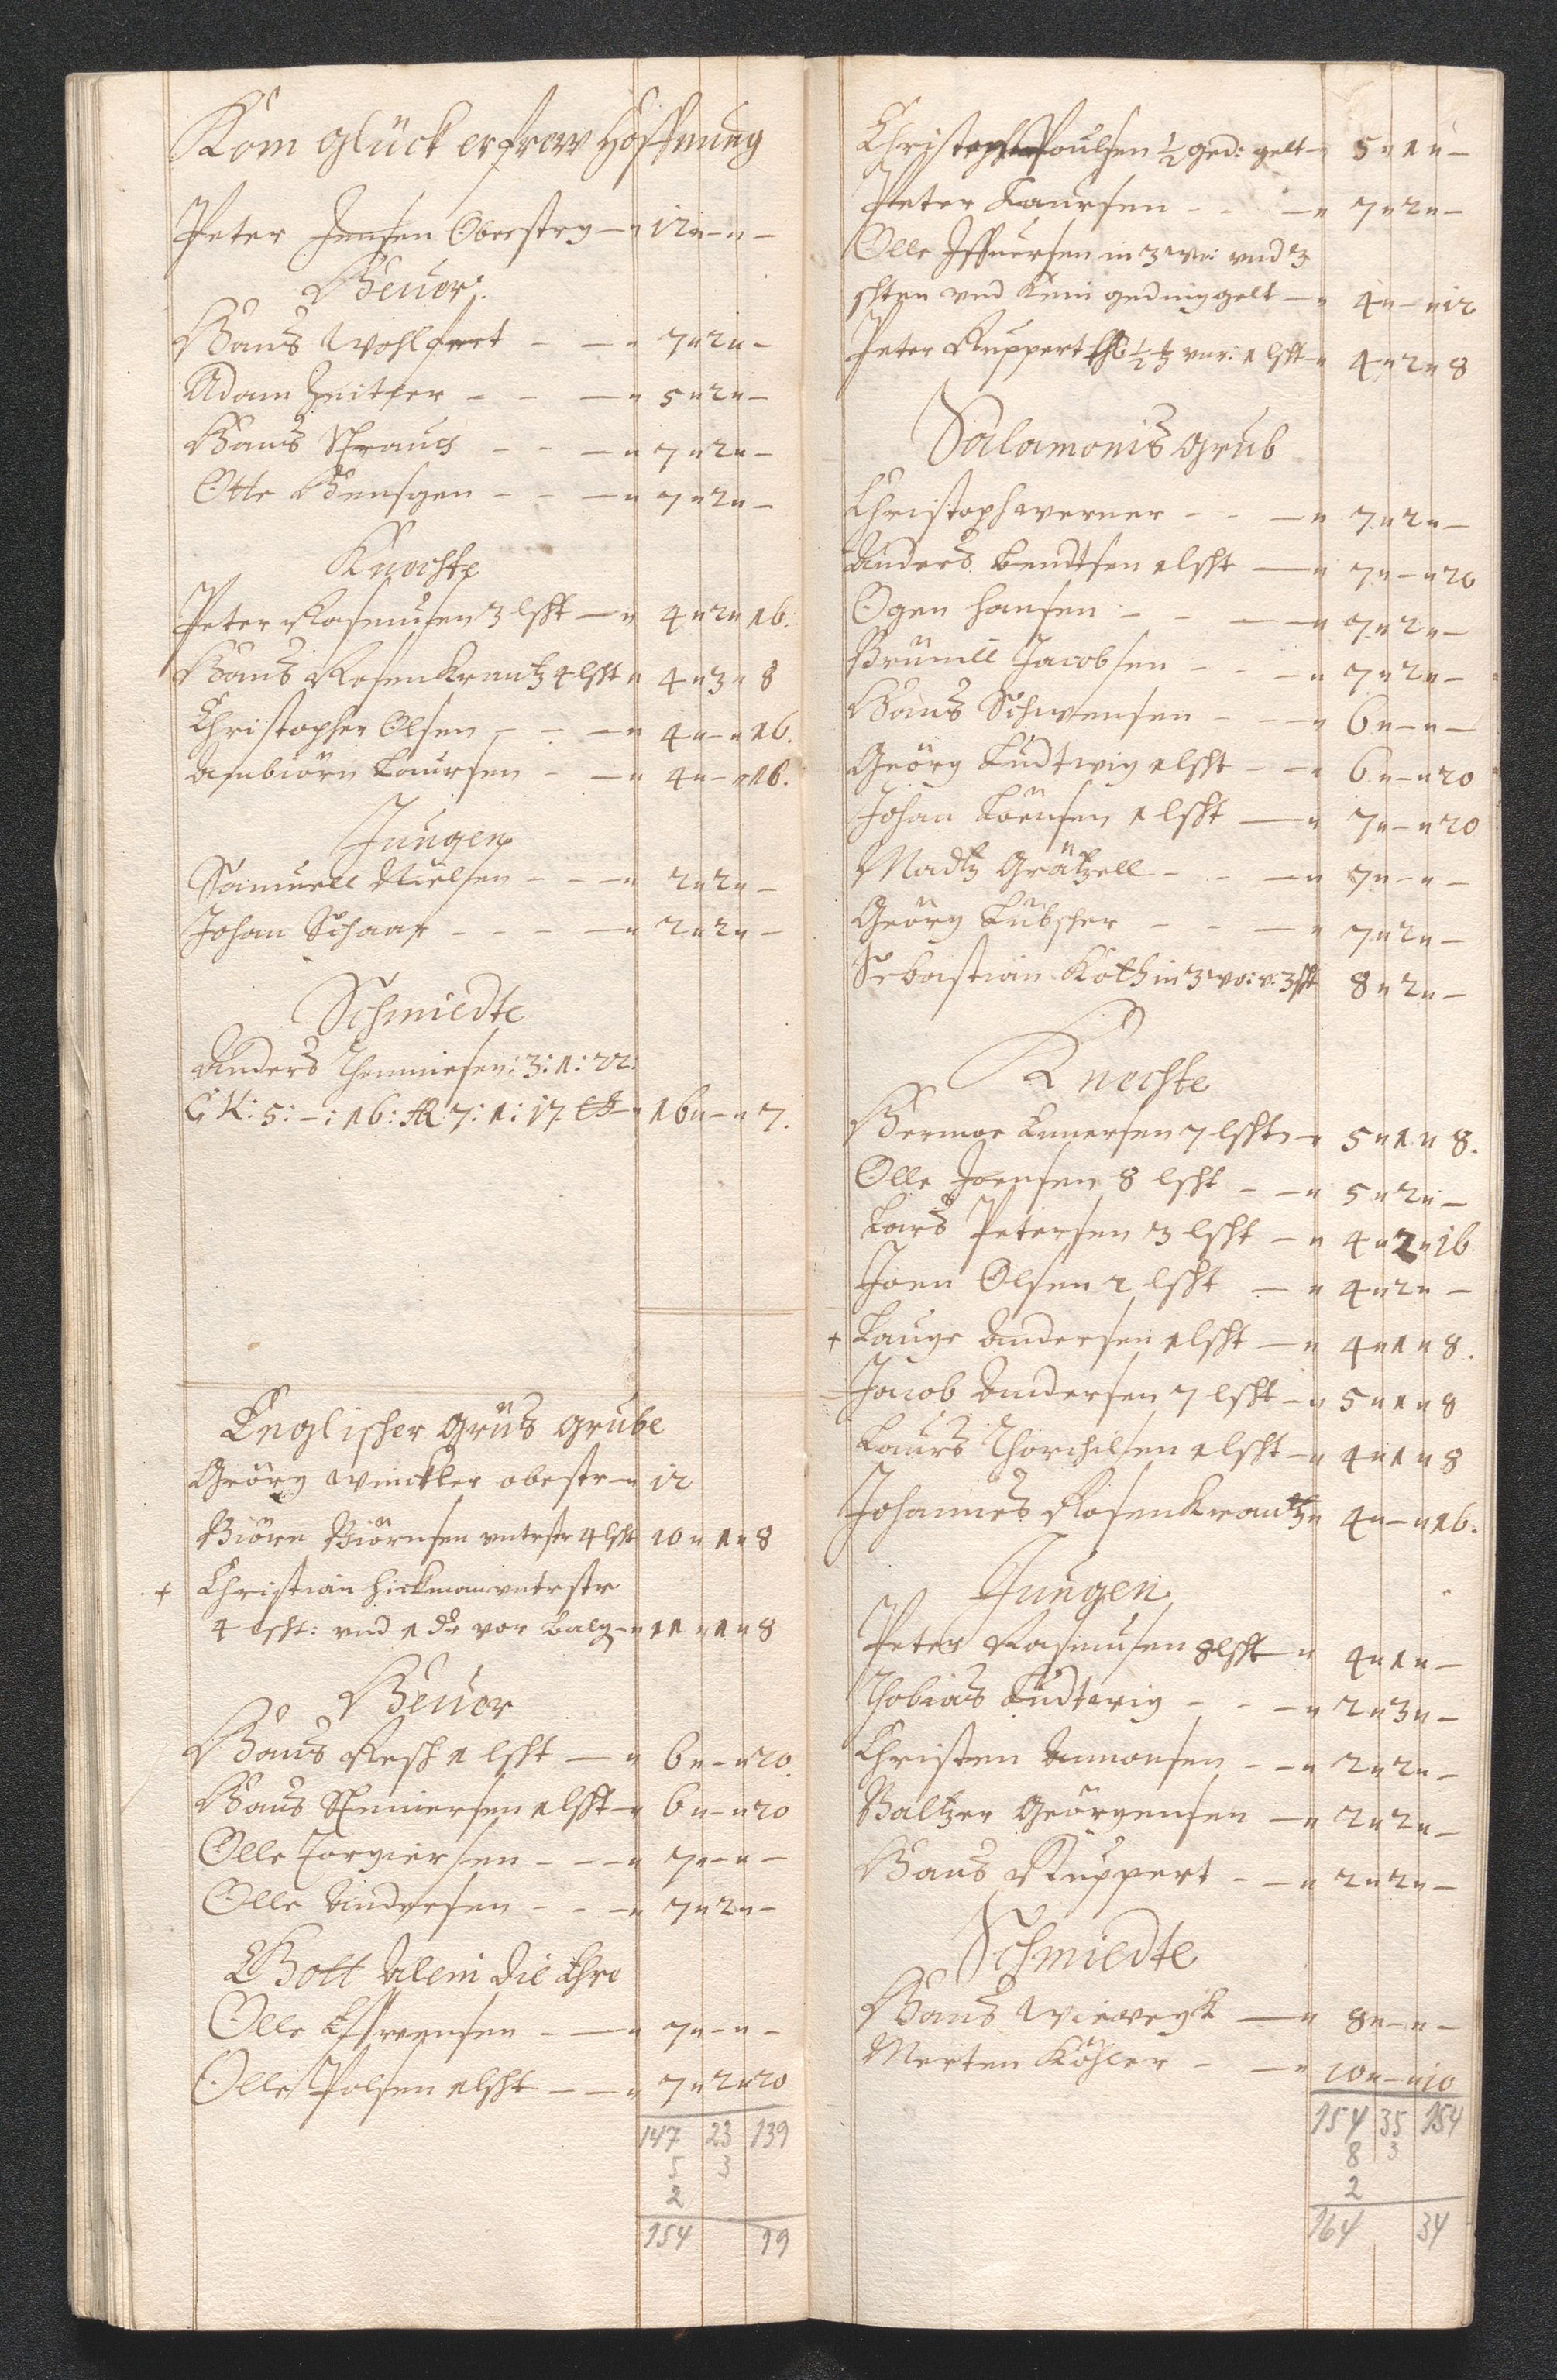 Kom glück erfrew Hoffnung
Peter Jensen Oberstey — " 12 " — " —
Heuer:
Hans Wohlfert - — " 7 " 2 " —
Adam Zeitler - - — " 5 " 2 " —
Hans Straus - - — " 7 " 2 " —
Otte Hensgen - - — " 7 " 2 " —
Knechte
Peter Rasmusen 3 lsht — " 4 " 2 " 16.
Hans Rosenkrantz 4 lsht " 4 " 3 " 8
Christopher Olsen - - — " 4 " — " 16.
Asbiörn Laursen - — " 4 " — " 16.
Jungen
Samuell Nielsen - - — " 2 " 2 " —
Johan Schaar - - - — " 2 " 2 " —
Schmiedte
Anders Themiesen: 3: 1: 22:
G K: 5: —: 16: AR 7: 1: 17 — " 16 " — " 7.
Englischer Grus grube
Geörg Winckler obestr — " 12
Biörn Biörnsen vntrstr 4 lsht 10 " 1 " 8
+ Christian Hickman vntrstr
4 lsht: vnd 1 dr vor balg — " 11 " 1 " 8
Heuer
Hans Resch 1 lsht — " 6 " — " 20.
Hans Steniersen 1 lsht — " 6 " — " 20
Olle Torgiersen - - — " 7 " — " —
Olle Andersen - - — " 7 " 2 " —
Gott Alein die Ehre
Olle Effwensen - — " 7 " — " —
Olle Polsen 1 lsht — — " 7 " 2 " 20
147 23 139
5 3
2
154 19
Christopher Poulsen ½ ged: gelt — " 5 " 1 " —
Peter Laursen - - — " 7 " 2 " —
Olle Iffuersen in 3 wo: vnd 3
shten vnd Kein gedinggelt — " 4 " — " 12
Peter Ruppert ½ vnr: 1 lsht — " 4 " 2 " 8
Salamonis grub
Christoph Werner - - — " 7 " 2 " —
Anders Bendtsen 1 lsht — " 7 " — " 20
Ogen Hansen - - — " 7 " 2 " —
Brunill Jacobsen - - — " 7 " 2 " —
Hans Schwensen - - — " 6 " — " —
Geörg Ludtwig 1 lsht - — " 6 " — " 20
Johan Löensen 1 lsht — " 7 " — " 20
Madtz Grätzell - - — " 7 " — " —
Geörg Lubscher - - — " 7 " 2 " —
Sebastian Koth in 3 wo: v: 3 sht 8 " 2 " —
Knechte
Hermoe Enersen 7 lsht — " 5 " 1 " 8.
Olle Joensen 8 lsht - — " 5 " 2 " —
Lars Petersen 3 lsht — " 4 " 2 " 16
Joen Olsen 2 lsht — " 4 " 2 " —
+ Lauge Andersen 1 lsht — " 4 " 1 " 8.
Jacob Andersen 7 lsht — " 5 " 1 " 8
Laurs Thorchilsen 1 lsht — " 4 " 1 " 8
Johannes Rosenkrantz " 4 " — " 16.
Jungen
Peter Rasmusen 8 lsht — " 4 " 1 " —
Thobias Ludtwig - - — " 2 " 3 " —
Christen Amonsen - — " 2 " 2 " —
Baltzer Geörgensen — " 2 " 2 " —
Hans Ruppert - — " 2 " 2 " —
Schmiedte
Hans Viewegk — " 8 " — " —
Merten Köhler - — " 10 " — " 10
154 35 154
8 3
2
164 34